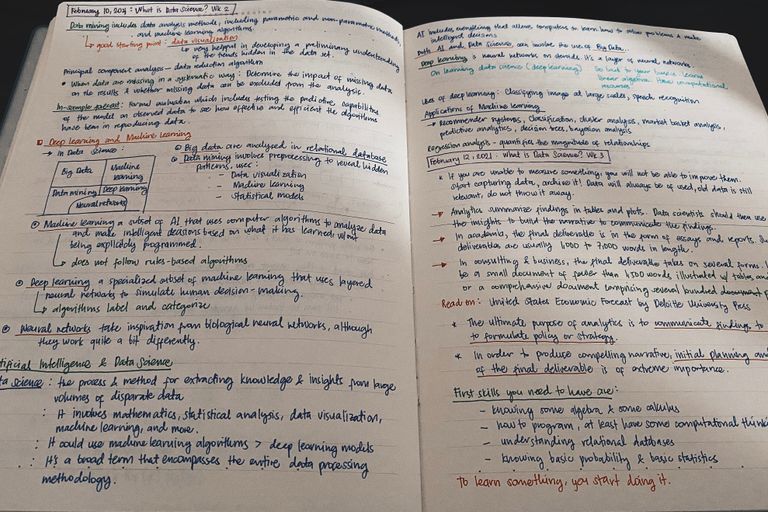 February 10, 2021 : What is Data Science? Wk 2
Data mining includes data analysis methods, including parametric and non-parametric methods,
and machine learning algorithms.
↳ good starting point : data visualization
↳ very helpful in developing a preliminary understanding
of the trends hidden in the data set.
Principal component analysis – data reduction algorithm
* When data are missing in a systematic way : Determine the impact of missing data
on the results & whether missing data can be excluded from the analysis
In-sample forecast : Formal evaluation which includes testing the predictive capabilities
of the model on observed data to see how effective and efficient the algorithms
have been in reproducing data.
Deep Learning and Machine Learning
→ In Data Science :
Big Data
Machine learning
Data mining
Deep learning
Neural networks
Big data are analyzed in relational database
Data mining involves preprocessing to reveal hidden
patterns, uses :
– Data visualization
– Machine learning
– Statistical models
Machine learning a subset of AI that uses computer algorithms to analyze data
and make intelligent decisions based on what it has learned w/out
being explicitly programmed.
↳ does not follow rules-based algorithms
Deep learning a specialized subset of machine learning that uses layered
neural networks to simulate human decision-making.
↳ algorithms label and categorize
Neural networks take inspiration from biological neural networks, although
they work quite a bit differently.
tificial Intelligence & Data Science
ta science : the process & method for extracting knowledge & insights from large
volumes of disparate data
: It involves mathematics, statistical analysis, data visualization,
machine learning, and more.
: It could use machine learning algorithms > deep learning models
: It's a broad term that encompasses the entire data processing
methodology.
AI includes everything that allows computers to learn how to solve problems & make
intelligent decisions
Both AI and Data Science, can involve the use of Big Data.
Deep learning > neural networks on steroids. it's a layer of neural networks
On learning data science (deep learning)
linear algebra
Uses of deep learning : Classifying image at large scales, speech recognition
Applications of Machine Learning
→ Recommender systems, classification, cluster analysis, market basket analysis,
predictive analytics, decision trees, bayesian analysis
Regression analysis – quantifies the magnitude of relationships
February 12, 2021 : What is Data Science? Wk 3
* If you are unable to measure something, you will not be able to improve them.
Start capturing data, archive it! Data will always be of used, old data is still
relevant, do not throw it away.
→ Analytics summarize findings in tables and plots. Data scientists should then use
the insights to build the narrative to communicate the findings.
→ In academia, the final deliverable is in the form of essays and reports. Such
deliverables are usually 1000 to 7,000 words in length.
→ In consulting & business, the final deliverable takes on several forms. It
be a small document of fewer than 1,500 words illustrated w/ tables and
or a comprehensive document comprising several hundred document
Read on : United States Economic Forecast by Deloitte University Press
* The ultimate purpose of analytics is to communicate findings to
to formulate policy or strategy.
* In order to produce compelling narrative, initial planning and
of the final deliverable is of extreme importance.
First skills you need to have are :
– knowing some algebra & some calculus
– how to program, at least have some computational thinki
– understanding relational databases
– knowing basic probability & basic statistics
To learn something, you start doing it.